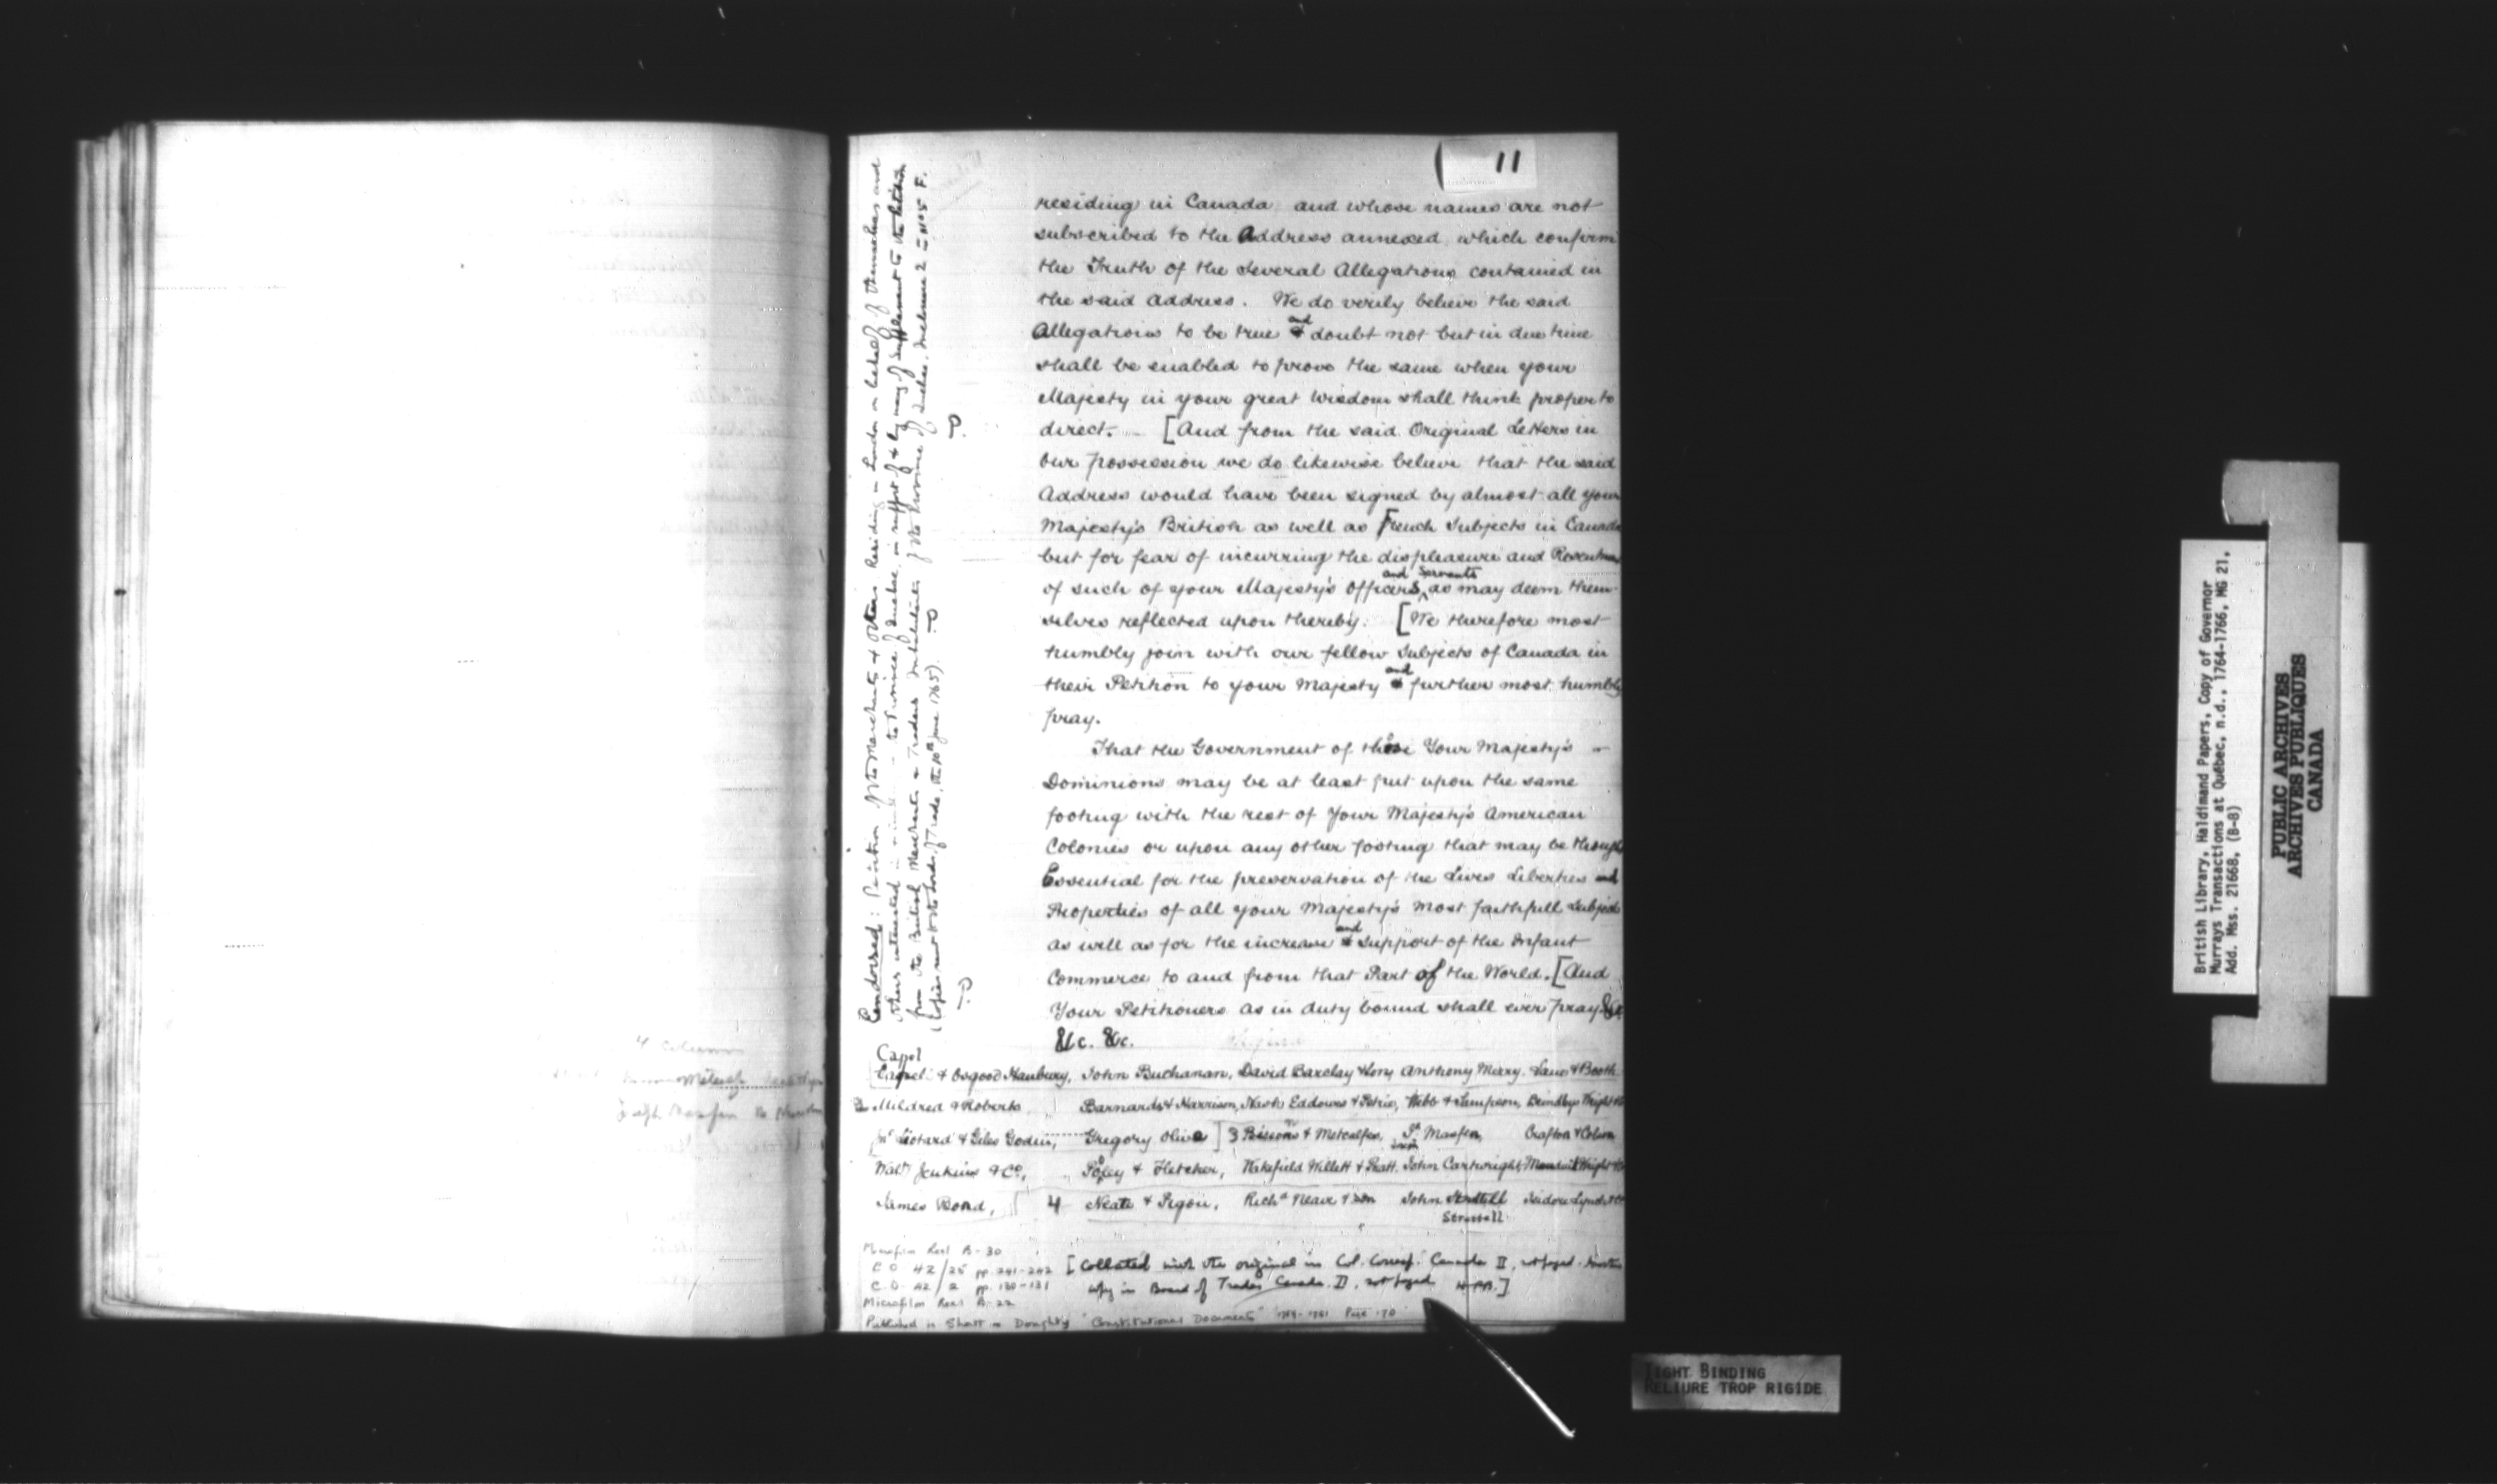 11
residing in Canada and whose names are not
subscribed to the Address annexed which confirm
the Truth of the Several Allegations contained in
the said Address. We do verily believe the said
Allegations to be true and doubt not but in due time
shall be enabled to prove the same when your
Majesty in your great Wisdom shall think proper to
direct. [And from the said Original Letters in
our possession we do likewise believe that the said
Address would have been signed by almost all your
Majesty's British as well as French Subjects in Canada
but for fear of incurring the displeasure and
of such of your Majesty's Officers and Servants as may deem them
selves reflected upon thereby. [We therefore most
humbly join with our fellow Subjects of Canada in
their Petition to your Majesty and further most humbly
pray.
That the Government of these Your Majesty's
Dominions may be at least put upon the same
footing with the rest of Your Majesty's American
Colonies or upon any other footing that may be
Essential for the preservation of the Lives Liberties and
Properties of all your Majesty's most faithfull
as well as for the increase and support of the Infant
Commerce to and from that Part of the World. [And
Your Petitioners as in duty bound shall ever pray &c
&c. &c.
Capel
& Osgood Hanbury, John Buchanan, David Barclay & Sons Anthony Merry. Lane & Booth
Mildred & Roberts Barnards & Harrison, Nash Eddowes & Petrie, Webb & Sampson, Brindleys Wright
& Giles Godin, Gregory Olive ] 3 & Metcalfe, Crafton & Colson
Walt. Jenkins & Co., Poley & Fletcher, Wakefield Willett & Pratt. John Cartwright,
James Bond, 4 Neate & Pigou, Richd Neave & Son John Strettell Isidore Lynch
Strettell
Microfilm Reel B-30
C.O. 42/25 pp. 241-242 [Collated with the original in Col. Corresp. Canada II, not paged.
C.O. 42/2 pp. 130-131 copy in Board of Trade Canada II, not paged
Microfilm Reel B-22
Published in Shortt & Doughty "Constitutional Documents" Page 170
Endorsed: Petition of the Merchants & others Residing in London on behalf of themselves and
others interested in the Province of Quebec, in support of & by way of Supplement to the Petition
from the British Merchants & Traders Inhabitants of the Province of Quebec. Inclosure 2 in No 5 F.
(Copies sent to the Lords of Trade, the 10th June 1765).
4 columns
British Library, Haldimand Papers, Copy of Governor
Murrays Transactions at Québec, n.d., 1764-1766, MG 21,
Add. Mss. 21668, (B-8)
PUBLIC ARCHIVES
ARCHIVES PUBLIQUES
CANADA
TIGHT BINDING
RELIURE TROP RIGIDE